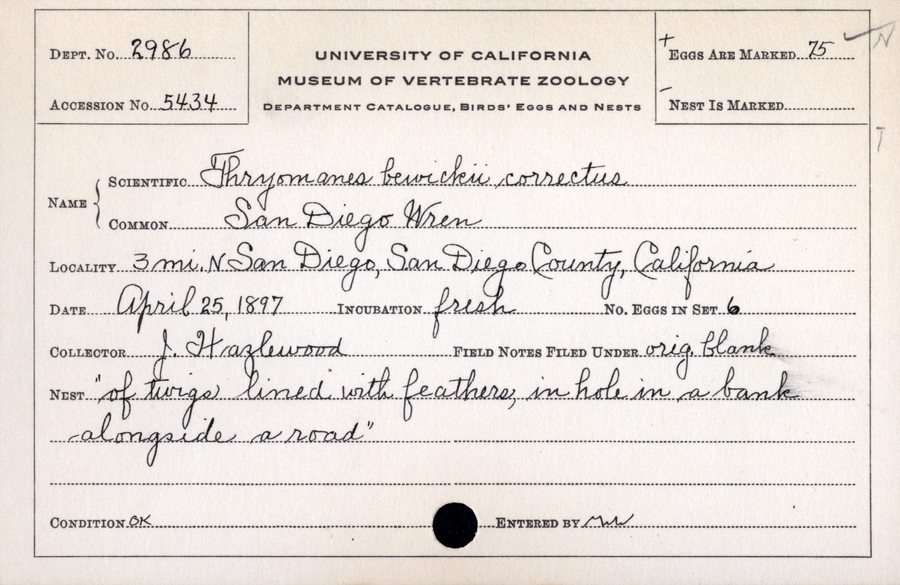 Dept. No. 2986
Accession No. 5434
UNIVERSITY OF CALIFORNIA
MUSEUM OF VERTEBRATE ZOOLOGY
Department Catalogue, Birds' Eggs and Nests
+ Eggs Are Marked 75
- Nest Is Marked
N
T
Name { Scientific Thryomanes bewickii correctus
Common San Diego Wren
Locality 3 mi. N San Diego, San Diego County, California
Date April 25, 1897 Incubation fresh No. Eggs in Set 6
Collector J. Hazlewood Field Notes Filed Under orig. blank
Nest "of twigs lined with feathers, in hole in a bank
alongside a road"
Condition OK Entered by